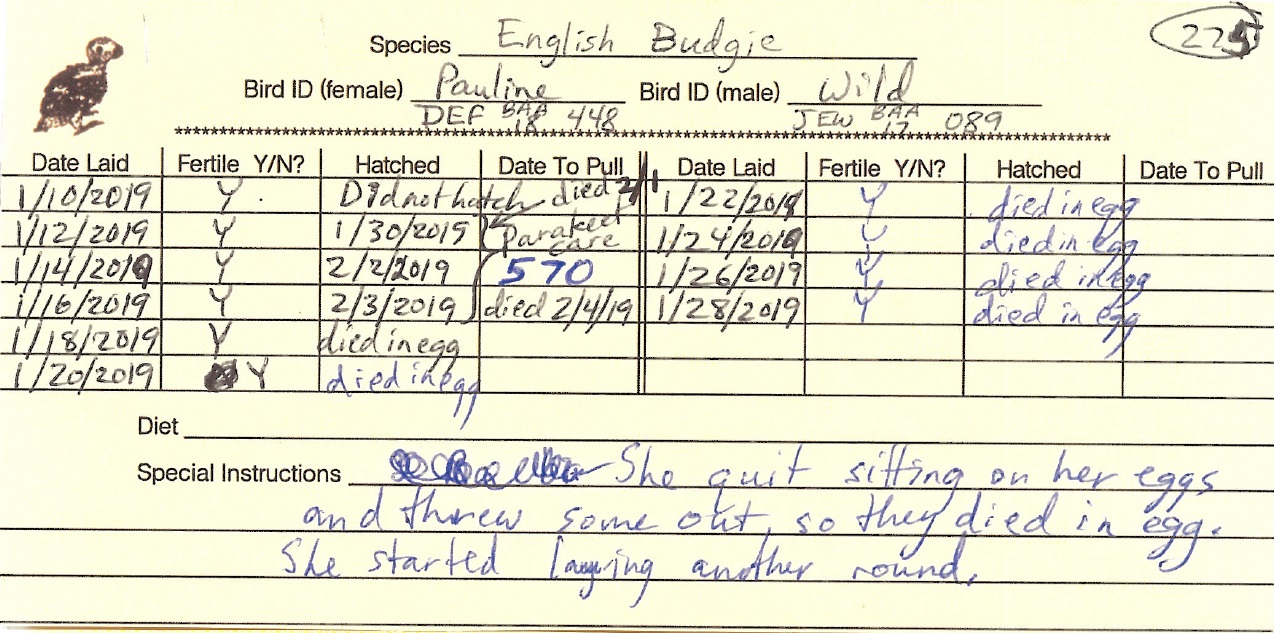 Species English Budgie 225
Bird ID (female) Pauline Bird ID (male) Wild
DEF BAA 18 448 JEW BAA 17 089
***********************************************************************************
Date Laid Fertile Y/N? Hatched Date To Pull Date Laid Fertile Y/N? Hatched Date To Pull
1/10/2019 Y Did not hatch died 2/1 1/22/2019 Y died in egg
1/12/2019 Y 1/30/2019 Parakeet care 1/24/2019 Y died in egg
1/14/2019 Y 2/2/2019 570 1/26/2019 Y died in egg
1/16/2019 Y 2/3/2019 died 2/4/19 1/28/2019 Y died in egg
1/18/2019 Y died in egg
1/20/2019 Y died in egg
Diet
Special Instructions She quit sitting on her eggs
and threw some out, so they died in egg.
She started laying another round.